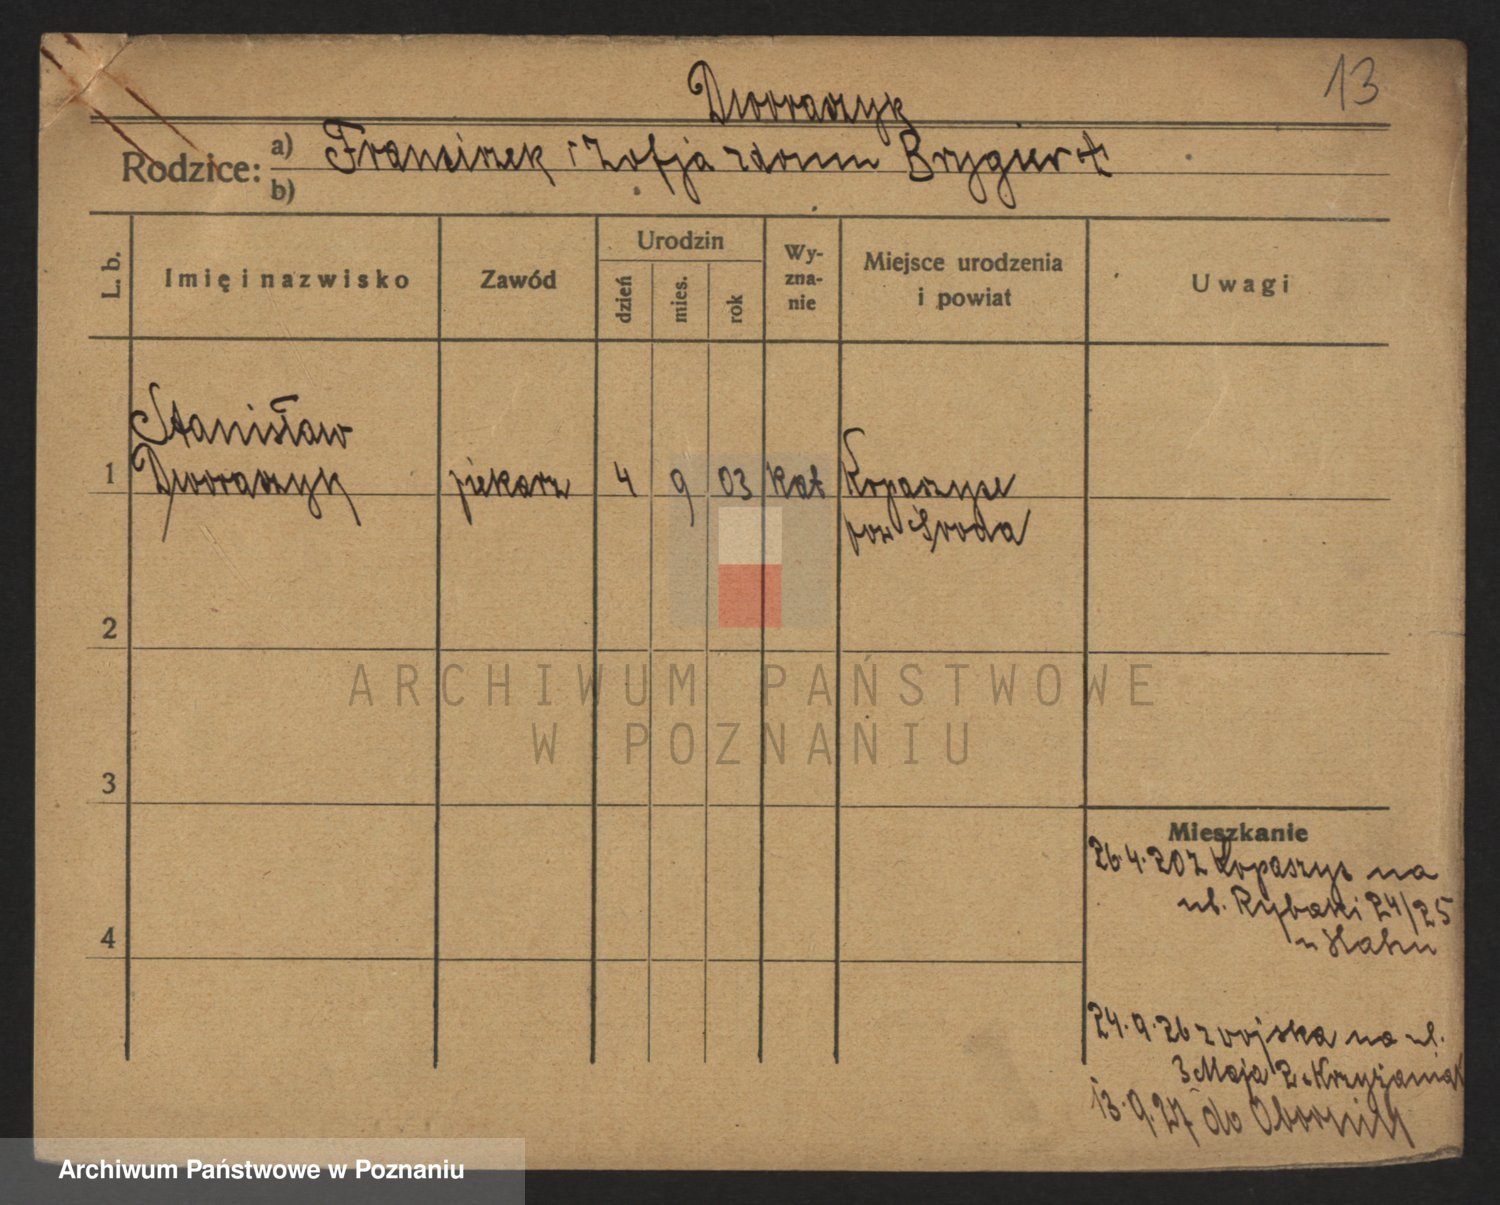 13
Dworaszyk
Rodzice: a) Franciszek i Zofja z domu Brygier +
b)
L. b.
Imię i nazwisko
Zawód
Urodzin
dzień
mies.
rok
Wy-
zna-
nie
Miejsce urodzenia
i powiat
Uwagi
Stanisław
1 Dworaszyk piekarz 4 9 03 kat Kopaszyce
pow Środa
2
ARCHIWUM PAŃSTWOWE
W POZNANIU
3
Mieszkanie
26.4.20 z Kopaszyc na
ul. Rybaki 24/25
u Hahn
4
24.9.26 z wojska na ul.
3 Maja 2 u Krzyżaniak
13.9.27 do Obornik
Archiwum Państwowe w Poznaniu